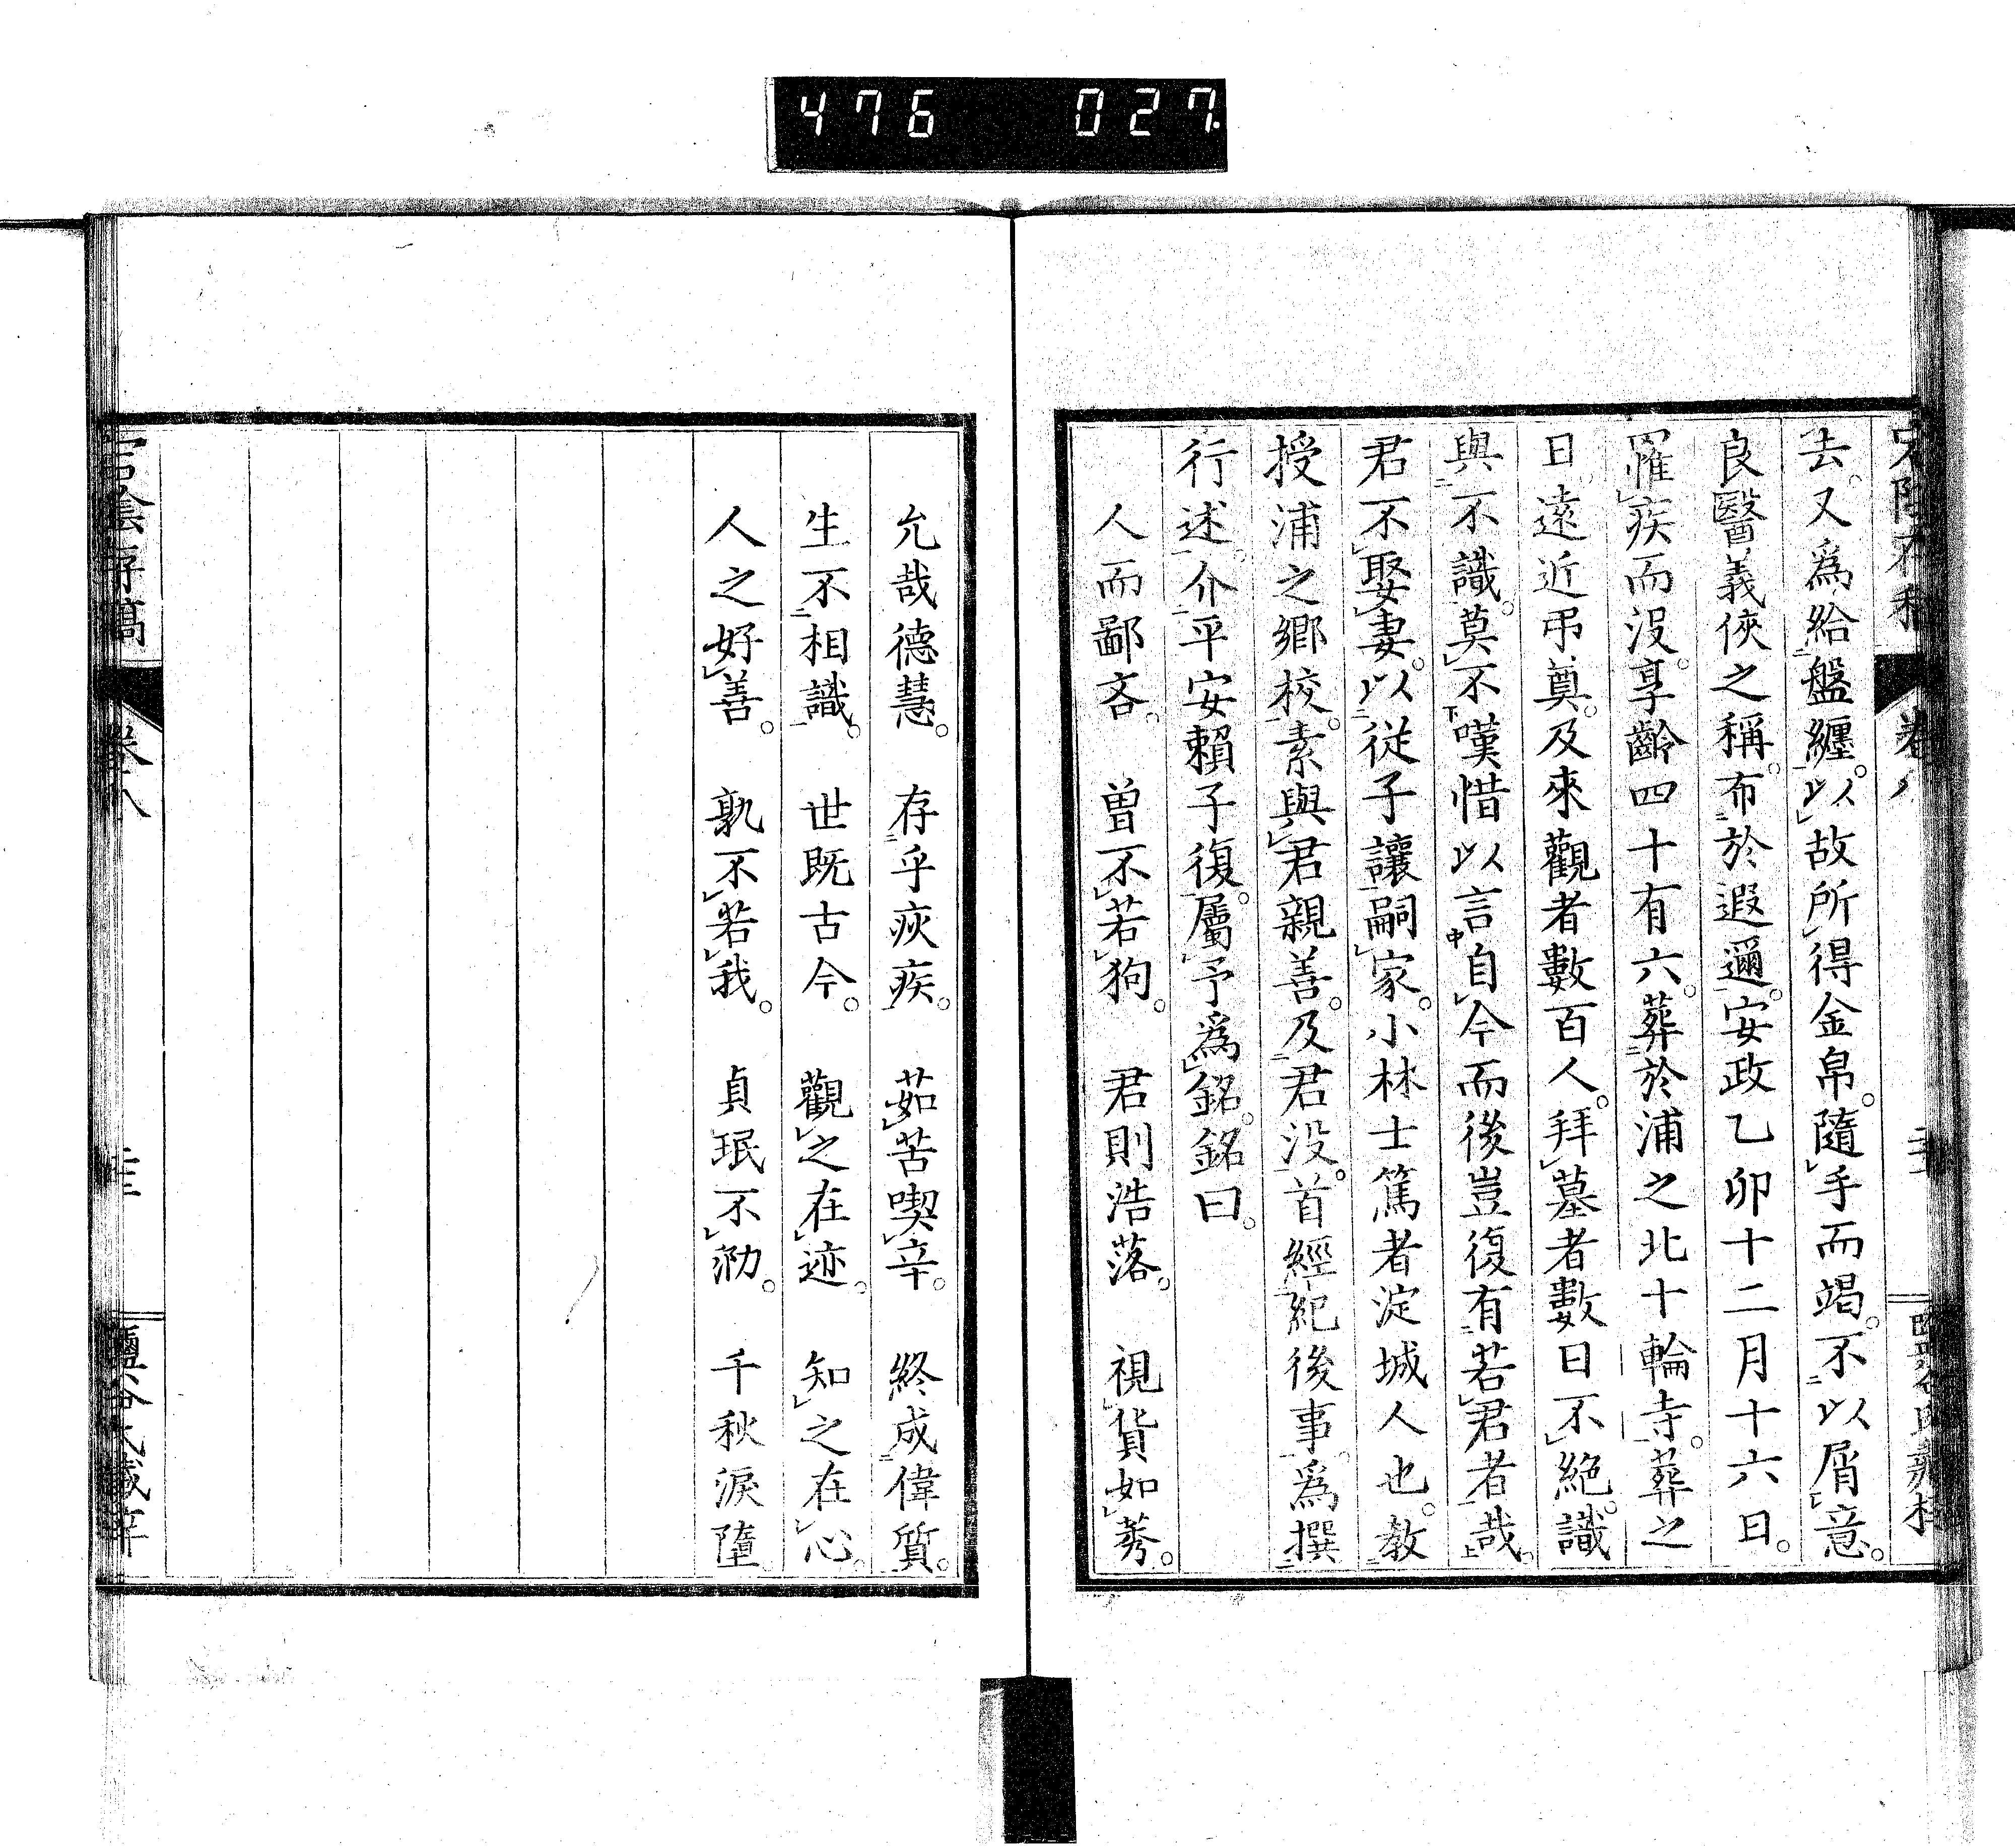 476 027
去。又爲給盤纏。以故所得金帛。隨手而竭。不以屑意。
良醫義俠之稱。布於遐邇。安政乙卯十二月十六日。
罹疾而沒。享齡四十有六。葬於浦之北十輪寺。葬之
日。遠近弔奠。及來觀者數百人。拜墓者數日不絶。識
與不識。莫不嘆惜以言自今而後豈復有若君者哉。
君不娶妻。以從子讓嗣家。小林士篤者淀城人也。教
授浦之鄉校。素與君親善。及君没。首經紀後事。爲撰
行述。介平安賴子復。屬予爲銘。銘曰。
人而鄙吝。 曾不若狗。 君則浩落。 視貨如莠。
允哉德慧。 存乎疢疾。 茹苦喫辛。 終成偉質。
生不相識。 世既古今。 觀之在迹。 知之在心。
人之好善。 孰不若我。 貞珉不泐。 千秋淚墮。
宕陰存稿 卷八